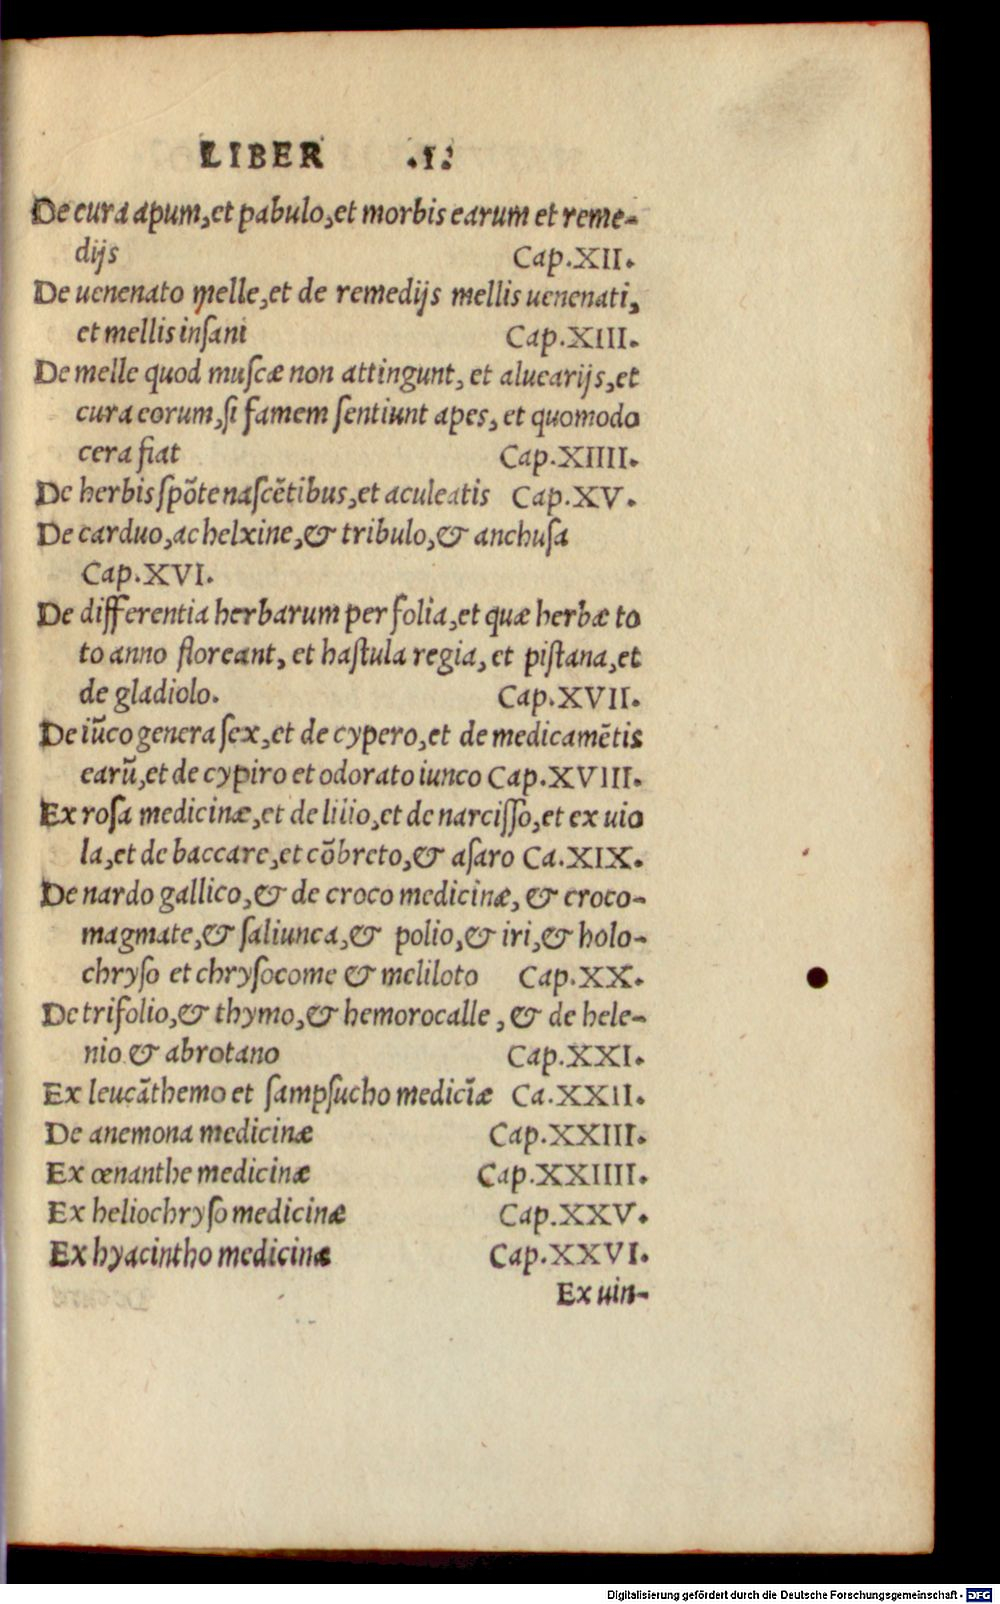 LIBER .I.
De cura apum, et pabulo, et morbis earum et reme-
dijs Cap.XII.
De uenenato melle, et de remedijs mellis uenenati,
et mellis inſani Cap.XIII.
De melle quod muſcæ non attingunt, et aluearijs, et
cura eorum, ſi famem ſentiunt apes, et quomodo
cera fiat Cap.XIIII.
De herbis ſpõte naſcẽtibus, et aculeatis Cap.XV.
De carduo, ac helxine, & tribulo, & anchuſa
Cap.XVI.
De differentia herbarum per folia, et quæ herbæ to
to anno floreant, et haſtula regia, et piſtana, et
de gladiolo. Cap.XVII.
De iũco genera ſex, et de cypero, et de medicamẽtis
earũ, et de cypiro et odorato iunco Cap.XVIII.
Ex roſa medicinæ, et de liiio, et de narciſſo, et ex uio
la, et de baccare, et cõbreto, & aſaro Ca.XIX.
De nardo gallico, & de croco medicinæ, & croco-
magmate, & ſaliunca, & polio, & iri, & holo-
chryſo et chryſocome & meliloto Cap.XX.
De trifolio, & thymo, & hemorocalle, & de hele-
nio & abrotano Cap.XXI.
Ex leucãthemo et ſampſucho medicĩæ Ca.XXII.
De anemona medicinæ Cap.XXIII.
Ex œnanthe medicinæ Cap.XXIIII.
Ex heliochryſo medicinæ Cap.XXV.
Ex hyacintho medicinæ Cap.XXVI.
Ex uin-
Digitalisierung gefördert durch die Deutsche Forschungsgemeinschaft - DFG